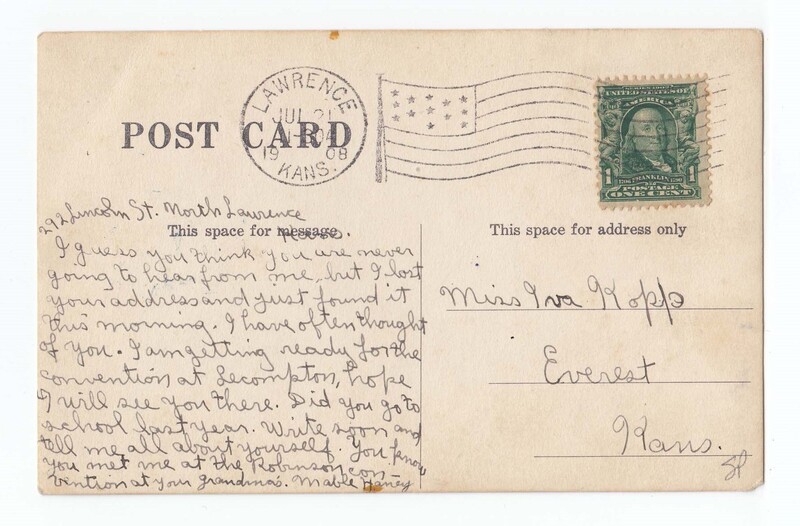 POST CARD
LAWRENCE
JUL 21
1908
KANS.
SERIES 1902
UNITED STATES OF
AMERICA
1 FRANKLIN 1
POSTAGE
ONE CENT
292 Lincoln St. North Lawrence
Kans.
This space for message.
I guess you think you are never
going to hear from me, but I lost
your address and just found it
this morning. I have often thought
of you. I am getting ready for the
convention at Lecompton, hope
I will see you there. Did you go to
school last year. Write soon and
tell me all about yourself. You know
you met me at the Robinson con
vention at your grandma's. Mable Haney
This space for address only
Miss Iva Kopp
Everest
Kans.